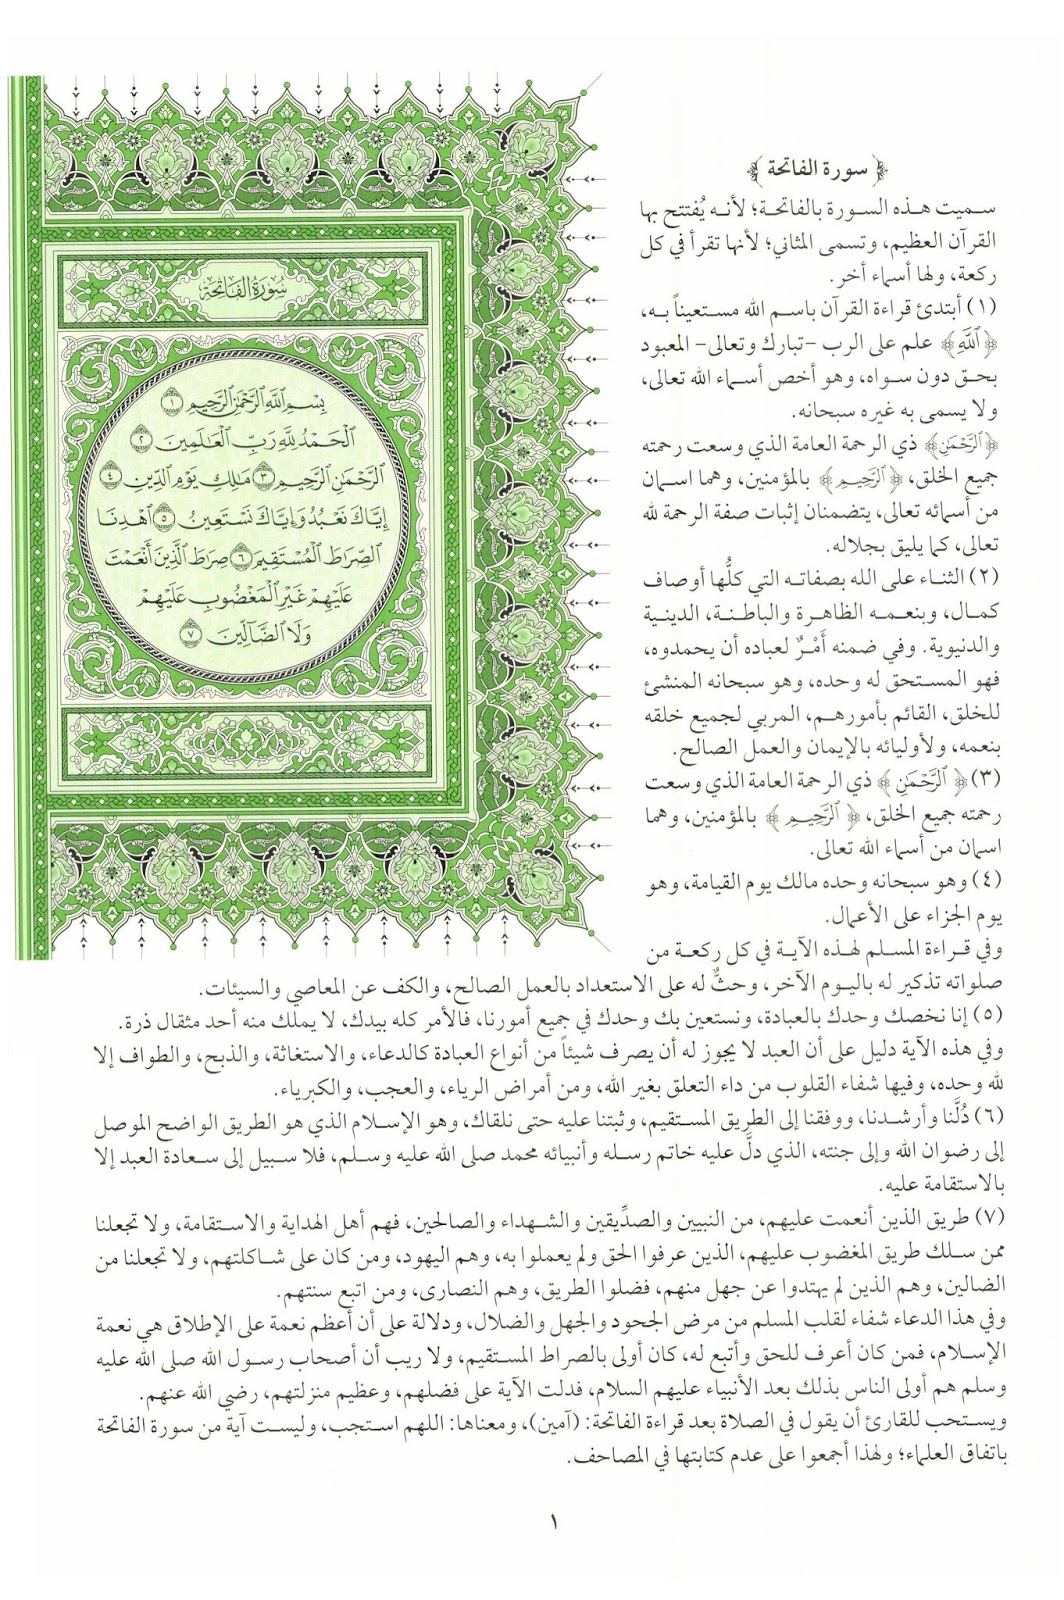 ﴿ سورة الفاتحة ﴾
سميت هذه السورة بالفاتحة؛ لأنه يُفتتح بها
القرآن العظيم، وتسمى المثاني؛ لأنها تقرأ في كل
ركعة، ولها أسماء أخر.
(١) أبتدئ قراءة القرآن باسم الله مستعيناً به،
﴿ٱللَّهِ﴾ علم على الرب -تبارك وتعالى- المعبود
بحق دون سواه، وهو أخص أسماء الله تعالى،
ولا يسمى به غيره سبحانه.
﴿ٱلرَّحْمَٰنِ﴾ ذي الرحمة العامة الذي وسعت رحمته
جميع الخلق، ﴿ٱلرَّحِيمِ﴾ بالمؤمنين، وهما اسمان
من أسمائه تعالى، يتضمنان إثبات صفة الرحمة لله
تعالى، كما يليق بجلاله.
(٢) الثناء على الله بصفاته التي كلُّها أوصاف
كمال، وبنعمه الظاهرة والباطنة، الدينية
والدنيوية. وفي ضمنه أَمْرٌ لعباده أن يحمدوه،
فهو المستحق له وحده، وهو سبحانه المنشئ
للخلق، القائم بأمورهم، المربي لجميع خلقه
بنعمه، ولأوليائه بالإيمان والعمل الصالح.
(٣) ﴿ ٱلرَّحْمَٰنِ ﴾ ذي الرحمة العامة الذي وسعت
رحمته جميع الخلق، ﴿ ٱلرَّحِيمِ ﴾ بالمؤمنين، وهما
اسمان من أسماء الله تعالى.
(٤) وهو سبحانه وحده مالك يوم القيامة، وهو
يوم الجزاء على الأعمال.
وفي قراءة المسلم لهذه الآية في كل ركعة من
صلواته تذكير له باليوم الآخر، وحثٌّ له على الاستعداد بالعمل الصالح، والكف عن المعاصي والسيئات.
(٥) إنا نخصك وحدك بالعبادة، ونستعين بك وحدك في جميع أمورنا، فالأمر كله بيدك، لا يملك منه أحد مثقال ذرة.
وفي هذه الآية دليل على أن العبد لا يجوز له أن يصرف شيئاً من أنواع العبادة كالدعاء، والاستغاثة، والذبح، والطواف إلا
لله وحده، وفيها شفاء القلوب من داء التعلق بغير الله، ومن أمراض الرياء، والعجب، والكبرياء.
(٦) دُلَّنا وأرشدنا، ووفقنا إلى الطريق المستقيم، وثبتنا عليه حتى نلقاك، وهو الإسلام الذي هو الطريق الواضح الموصل
إلى رضوان الله وإلى جنته، الذي دلَّ عليه خاتم رسله وأنبيائه محمد صلى الله عليه وسلم، فلا سبيل إلى سعادة العبد إلا
بالاستقامة عليه.
(٧) طريق الذين أنعمت عليهم، من النبيين والصدِّيقين والشهداء والصالحين، فهم أهل الهداية والاستقامة، ولا تجعلنا
ممن سلك طريق المغضوب عليهم، الذين عرفوا الحق ولم يعملوا به، وهم اليهود، ومن كان على شاكلتهم، ولا تجعلنا من
الضالين، وهم الذين لم يهتدوا عن جهل منهم، فضلوا الطريق، وهم النصارى، ومن اتبع سنتهم.
وفي هذا الدعاء شفاء لقلب المسلم من مرض الجحود والجهل والضلال، ودلالة على أن أعظم نعمة على الإطلاق هي نعمة
الإسلام، فمن كان أعرف للحق وأتبع له، كان أولى بالصراط المستقيم، ولا ريب أن أصحاب رسول الله صلى الله عليه
وسلم هم أولى الناس بذلك بعد الأنبياء عليهم السلام، فدلت الآية على فضلهم، وعظيم منزلتهم، رضي الله عنهم.
ويستحب للقارئ أن يقول في الصلاة بعد قراءة الفاتحة: (آمين)، ومعناها: اللهم استجب، وليست آية من سورة الفاتحة
باتفاق العلماء؛ ولهذا أجمعوا على عدم كتابتها في المصاحف.
سُورَةُ الفَاتِحَةِ
بِسْمِ ٱللَّهِ ٱلرَّحْمَٰنِ ٱلرَّحِيمِ ١
ٱلْحَمْدُ لِلَّهِ رَبِّ ٱلْعَٰلَمِينَ ٢
ٱلرَّحْمَٰنِ ٱلرَّحِيمِ ٣ مَٰلِكِ يَوْمِ ٱلدِّينِ ٤
إِيَّاكَ نَعْبُدُ وَإِيَّاكَ نَسْتَعِينُ ٥ ٱهْدِنَا
ٱلصِّرَٰطَ ٱلْمُسْتَقِيمَ ٦ صِرَٰطَ ٱلَّذِينَ أَنْعَمْتَ
عَلَيْهِمْ غَيْرِ ٱلْمَغْضُوبِ عَلَيْهِمْ
وَلَا ٱلضَّآلِّينَ ٧
١